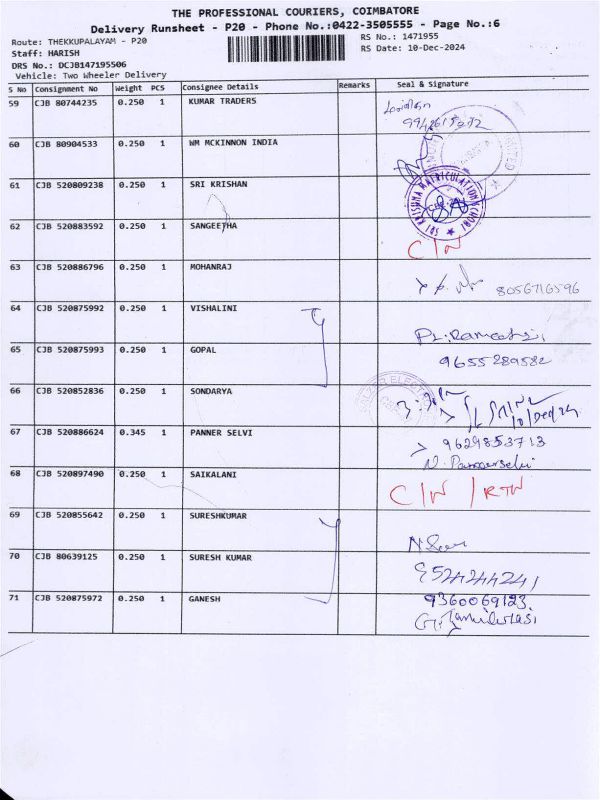 THE PROFESSIONAL COURIERS, COIMBATORE
Delivery Runsheet - P20 - Phone No.:0422-3505555 - Page No.:6
Route: THEKKUPALAYAM - P20
RS No.: 1471955
Staff: HARISH
RS Date: 10-Dec-2024
DRS No.: DCJB147195506
Vehicle: Two Wheeler Delivery
S No Consignment No Weight PCS Consignee Details Remarks Seal & Signature
59 CJB 80744235 0.250 1 KUMAR TRADERS
60 CJB 80904533 0.250 1 WM MCKINNON INDIA
61 CJB 520809238 0.250 1 SRI KRISHAN
SRI KRISHNA MATRICULATION SCHOOL
62 CJB 520883592 0.250 1 SANGEETHA
63 CJB 520886796 0.250 1 MOHANRAJ 8056716596
64 CJB 520875992 0.250 1 VISHALINI
65 CJB 520875993 0.250 1 GOPAL 9655289582
66 CJB 520852836 0.250 1 SONDARYA 10/Dec/24
67 CJB 520886624 0.345 1 PANNER SELVI 9629853713
68 CJB 520897490 0.250 1 SAIKALANI
69 CJB 520855642 0.250 1 SURESHKUMAR
70 CJB 80639125 0.250 1 SURESH KUMAR 9524244241
71 CJB 520875972 0.250 1 GANESH 9360069123